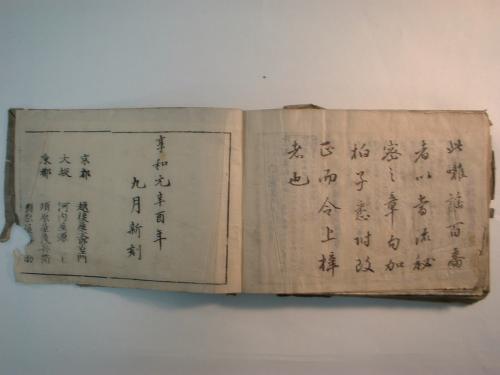 此囃謡百番
者以當流秘
密之章句加
拍子悉討改
正而令上梓
者也
享和元辛酉年
九月新刻
京都 越後屋
大坂 河内屋源
東都 須原屋茂兵衛